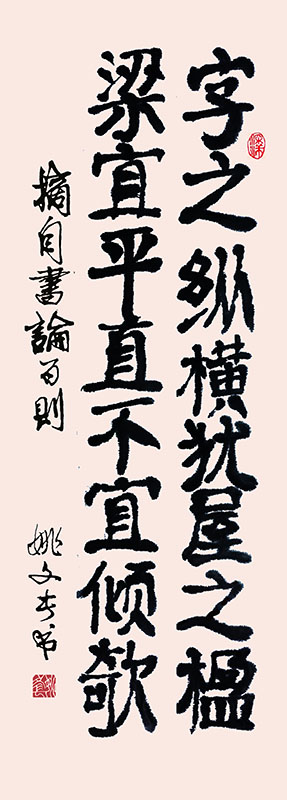 字之纵横犹屋之楹
梁宜平直不宜倾欹
摘自書論百則
姚文书